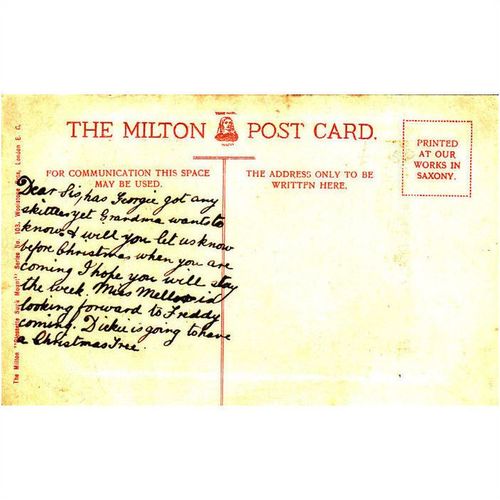 THE MILTON POST CARD.
FOR COMMUNICATION THIS SPACE
MAY BE USED.
THE ADDRESS ONLY TO BE
WRITTEN HERE.
PRINTED
AT OUR
WORKS IN
SAXONY.
Dear Sis, has Georgie got any
skittles yet Grandma wants to
know & will you let us know
before Christmas when you are
coming I hope you will stay
the week. Miss Mellor is
looking forward to Freddy
coming. Dickie is going to have
a Christmas Tree.
The Milton "Rosserie Black Mount" Series No. 103. Woolstone London E. C.